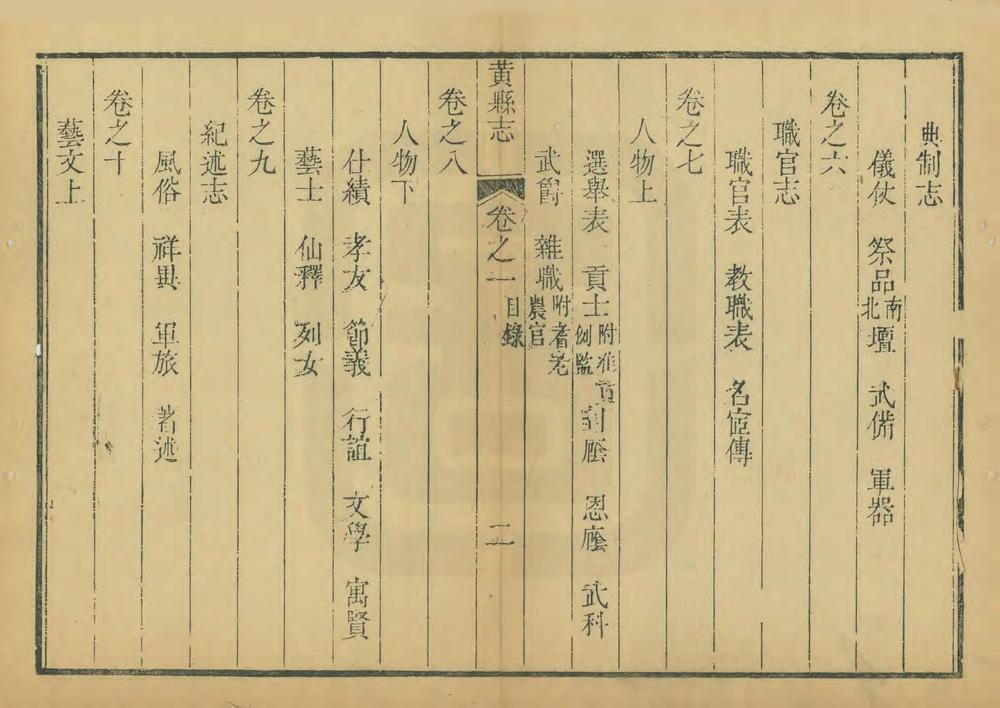 典制志
儀仗 祭品 南北壇 武備 軍器
卷之六
職官志
職官表 教職表 名宦傳
卷之七
人物上
選舉表 貢士 附准貢例監 封廕 恩廕 武科
武爵 雜職 附耆老農官
黃縣志 卷之一 目錄 二
卷之八
人物下
仕績 孝友 節義 行誼 文學 寓賢
藝士 仙釋 列女
卷之九
紀述志
風俗 祥異 軍旅 著述
卷之十
藝文上